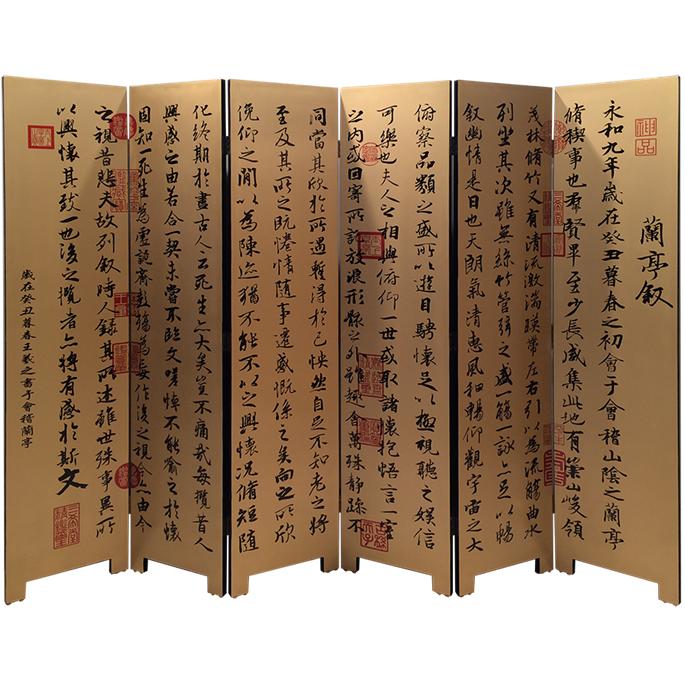 神品
蘭亭叙
永和九年歲在癸丑暮春之初會于會稽山陰之蘭亭
脩稧事也羣賢畢至少長咸集此地有崇山峻領
茂林脩竹又有清流激湍暎帶左右引以為流觴曲水
列坐其次雖無絲竹管弦之盛一觴一詠亦足以暢
叙幽情是日也天朗氣清惠風和暢仰觀宇宙之大
俯察品類之盛所以遊目騁懷足以極視聽之娛信
可樂也夫人之相與俯仰一世或取諸懷抱悟言一室
之内或因寄所託放浪形骸之外雖趣舍萬殊靜躁不
同當其欣於所遇蹔得於己怏然自足不知老之將
至及其所之既惓情隨事遷感慨係之矣向之所欣
俛仰之閒以為陳迹猶不能不以之興懷況脩短隨
化終期於盡古人云死生亦大矣豈不痛哉每攬昔人
興感之由若合一契未嘗不臨文嗟悼不能喻之於懷
固知一死生為虛誕齊彭殤為妄作後之視今亦由今
之視昔悲夫故列叙時人錄其所述雖世殊事異所
以興懷其致一也後之攬者亦將有感於斯文
歲在癸丑暮春王羲之書于會稽蘭亭